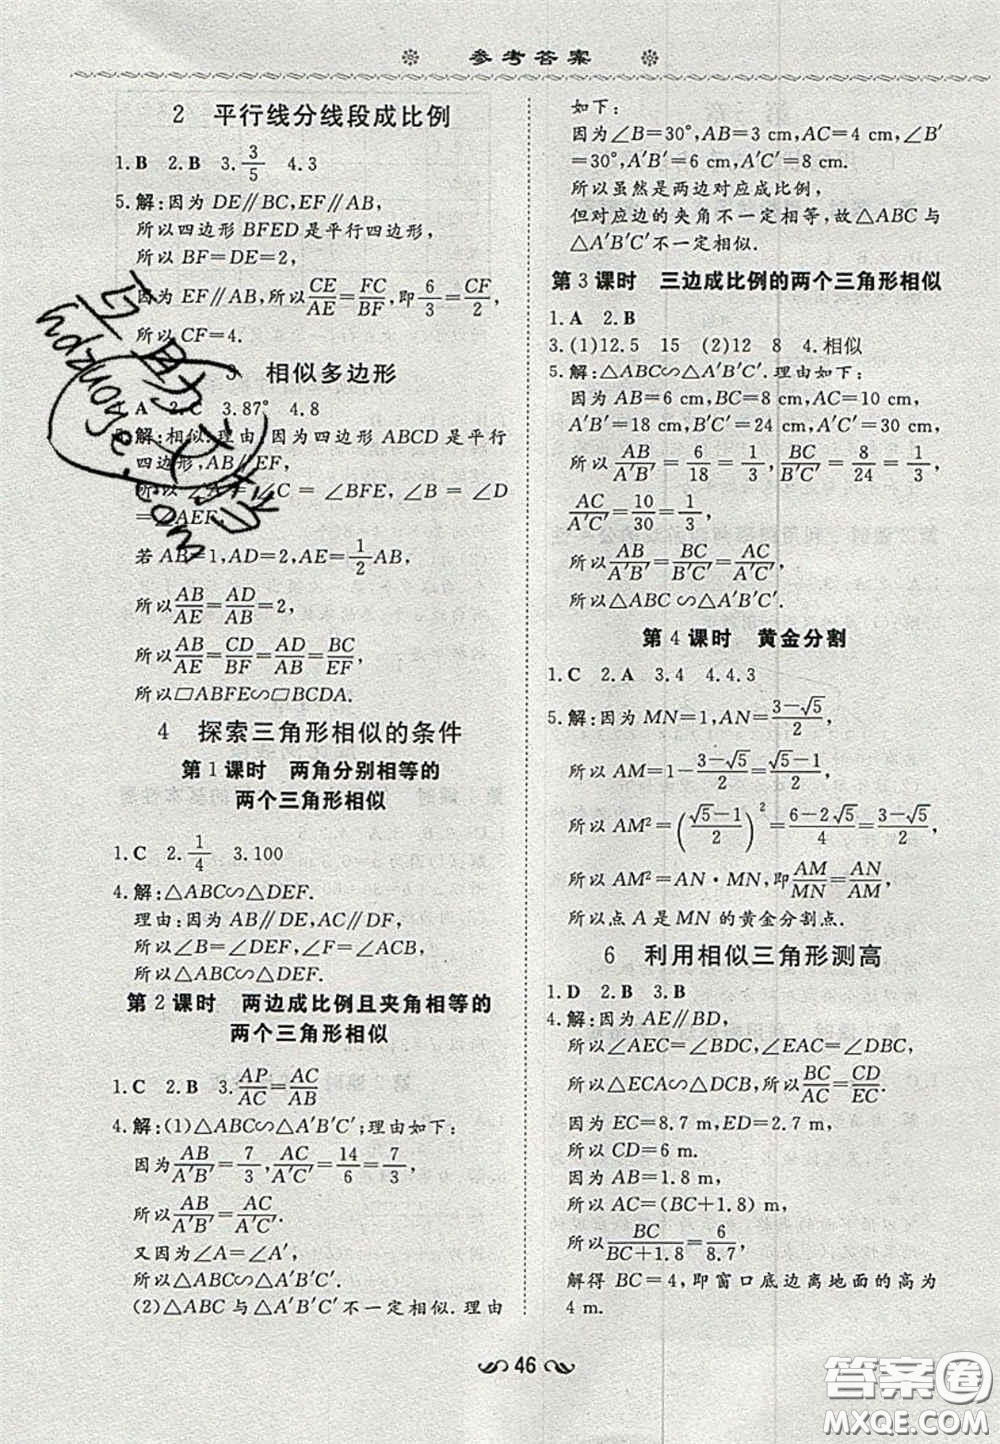 参考答案
2 平行线分线段成比例
1.B 2.B 3.3/5 4.3
5.解:因为DE∥BC,EF∥AB,
所以四边形BFED是平行四边形,
所以BF=DE=2,
因为EF∥AB,所以CE/AE=FC/BF,即6/3=CF/2,
所以CF=4.
3 相似多边形
A 2.C 3.87° 4.8
解:相似.理由:因为四边形ABCD是平行
四边形,AB∥EF,
所以∠A=∠C=∠BFE,∠B=∠D
=∠AEF.
若AB=1,AD=2,AE=1/2AB,
所以AB/AE=AD/AB=2,
所以AB/AE=CD/BF=AD/AB=BC/EF,
所以▱ABFE∽▱BCDA.
4 探索三角形相似的条件
第1课时 两角分别相等的
两个三角形相似
1.C 2.1/4 3.100
4.解:△ABC∽△DEF.
理由:因为AB∥DE,AC∥DF,
所以∠B=∠DEF,∠F=∠ACB,
所以△ABC∽△DEF.
第2课时 两边成比例且夹角相等的
两个三角形相似
1.C 2.B 3.AP/AC=AC/AB
4.解:(1)△ABC∽△A′B′C′;理由如下:
因为AB/A′B′=7/3,AC/A′C′=14/6=7/3,
所以AB/A′B′=AC/A′C′.
又因为∠A=∠A′,
所以△ABC∽△A′B′C′.
(2)△ABC与△A′B′C′不一定相似.理由
如下:
因为∠B=30°,AB=3 cm,AC=4 cm,∠B′
=30°,A′B′=6 cm,A′C′=8 cm.
所以虽然是两边对应成比例,
但对应边的夹角不一定相等,故△ABC与
△A′B′C′不一定相似.
第3课时 三边成比例的两个三角形相似
1.A 2.B
3.(1)12.5 15 (2)12 8 4.相似
5.解:△ABC∽△A′B′C′.理由如下:
因为AB=6 cm,BC=8 cm,AC=10 cm,
A′B′=18 cm,B′C′=24 cm,A′C′=30 cm,
所以AB/A′B′=6/18=1/3,BC/B′C′=8/24=1/3,
AC/A′C′=10/30=1/3,
所以AB/A′B′=BC/B′C′=AC/A′C′,
所以△ABC∽△A′B′C′.
第4课时 黄金分割
1.C 2.A 3.4 4.4.3
5.解:因为MN=1,AN=(3-√5)/2,
所以AM=1-(3-√5)/2=(√5-1)/2,
所以AM²=((√5-1)/2)²=(6-2√5)/4=(3-√5)/2,
所以AM²=AN·MN,即AM/MN=AN/AM,
所以点A是MN的黄金分割点.
6 利用相似三角形测高
1.D 2.B 3.B
4.解:因为AE∥BD,
所以∠AEC=∠BDC,∠EAC=∠DBC,
所以△ECA∽△DCB,所以BC/AC=CD/EC.
因为EC=8.7 m,ED=2.7 m,
所以CD=6 m.
因为AB=1.8 m,
所以AC=(BC+1.8) m,
所以BC/(BC+1.8)=6/8.7,
解得BC=4,即窗口底边离地面的高为
4 m.
46
hdzuoye.com
答案圈
MXQE.COM